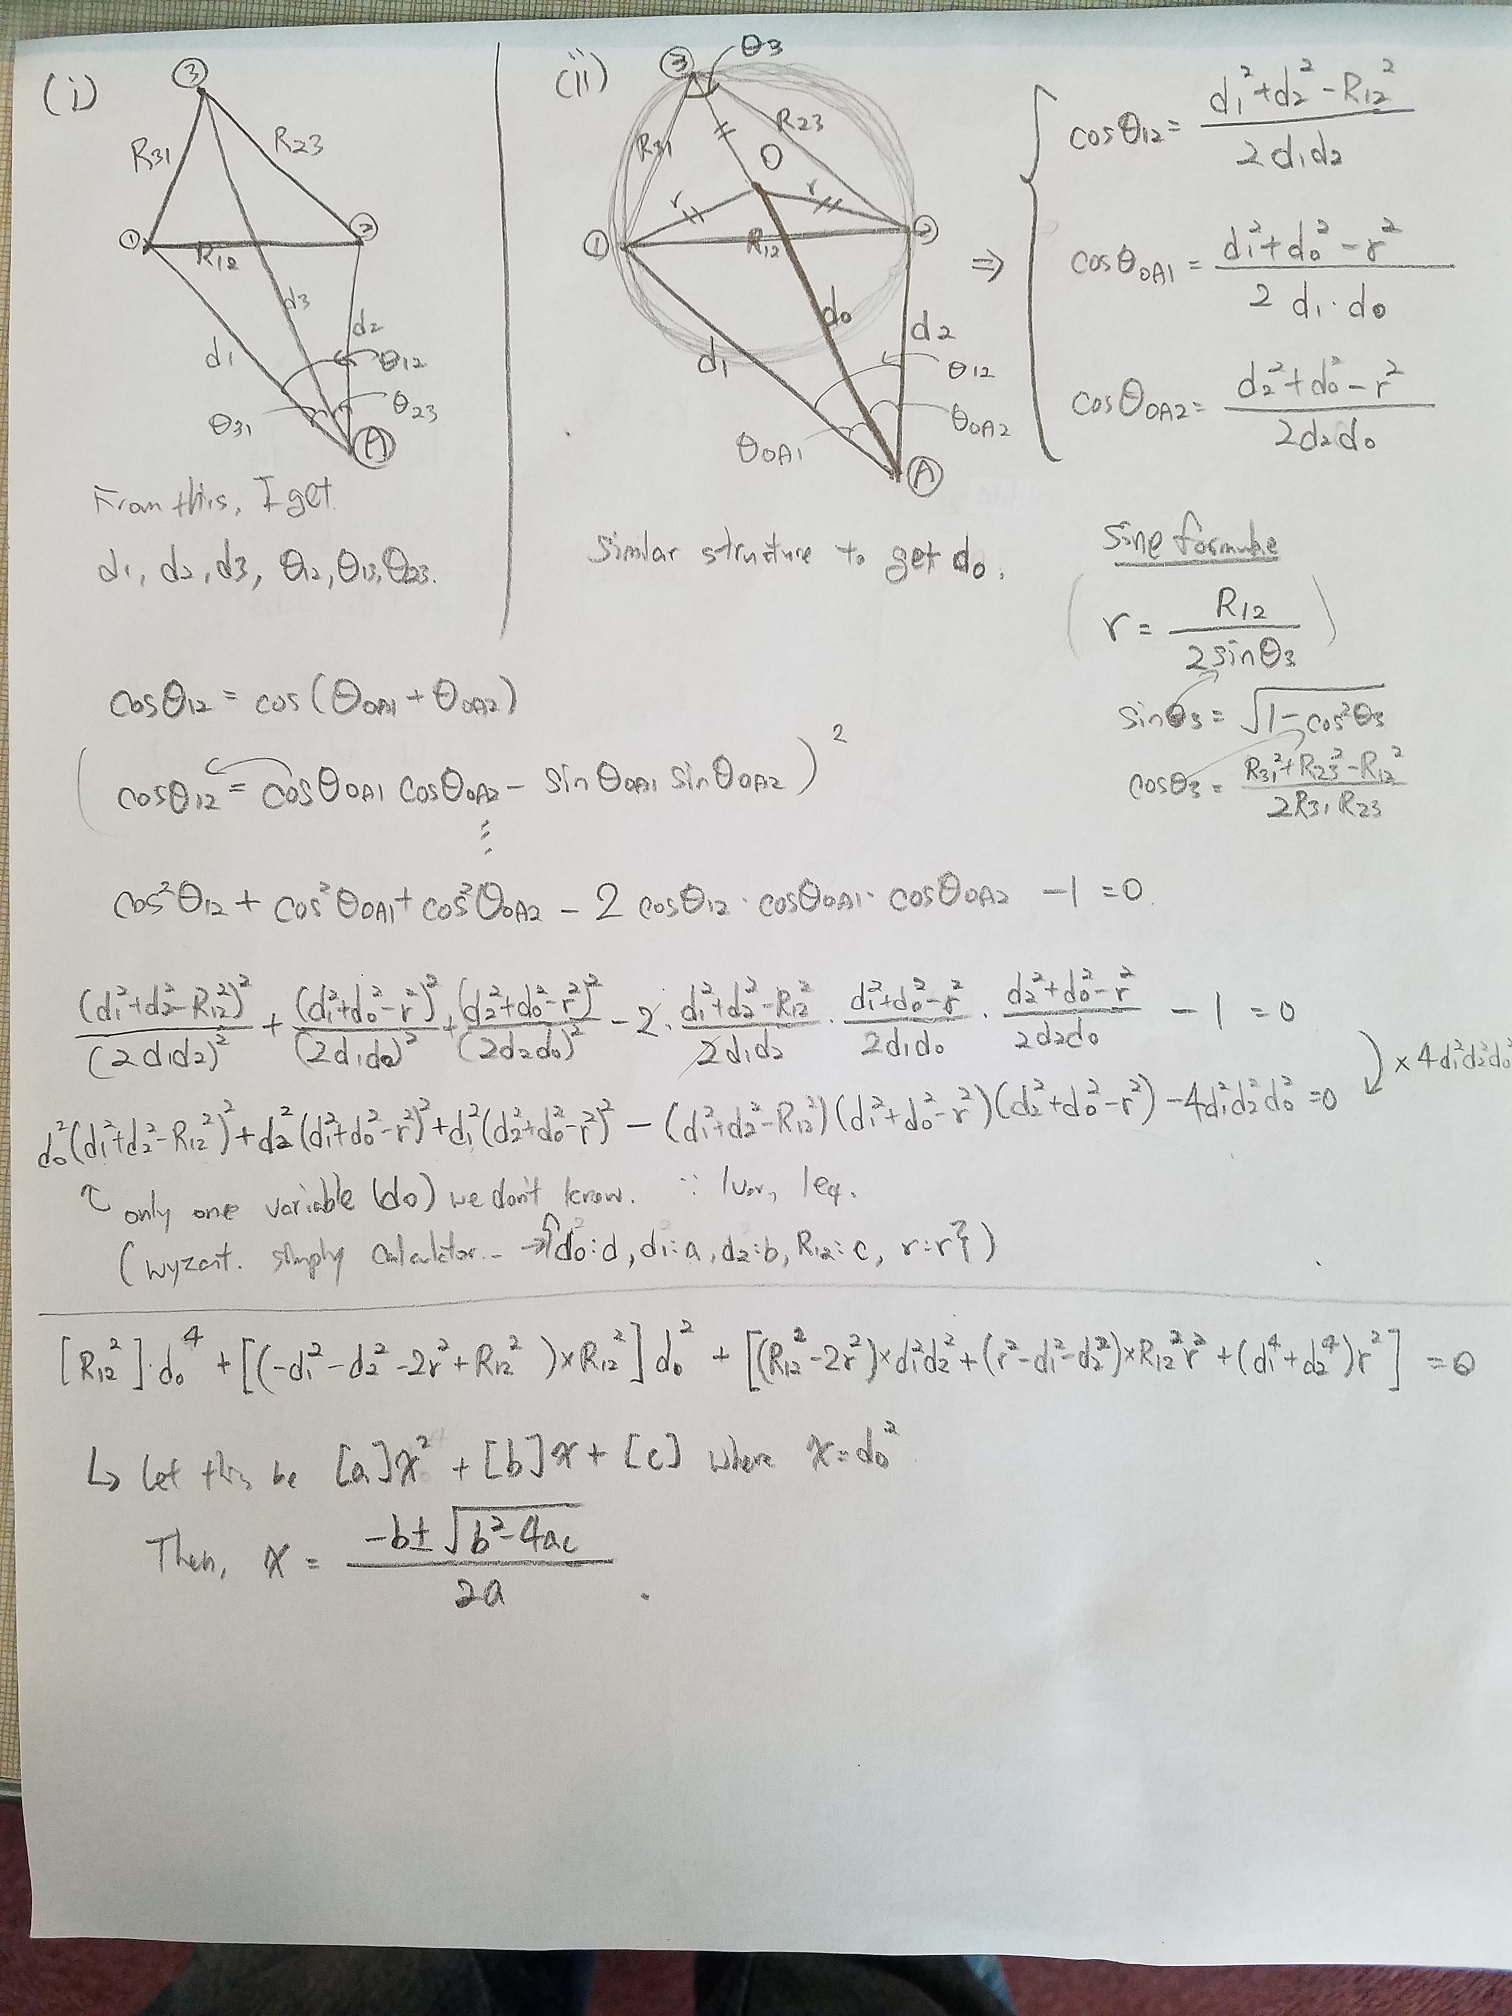 (i)
③
R31
R23
①
②
R12
d3
d1
d2
θ12
θ31
θ23
Ⓐ
From this, I get
d1, d2, d3, θ12, θ13, θ23.
(ii)
③
θ3
R31
R23
O
r
r
①
②
R12
d0
d1
d2
θ12
θOA1
θOA2
Ⓐ
Similar structure to get d0.
⇒ { cosθ12 = (d1² + d2² - R12²) / (2 d1 d2)
cosθOA1 = (d1² + d0² - r²) / (2 d1 · d0)
cosθOA2 = (d2² + d0² - r²) / (2 d2 d0)
Sine formulae
( r = R12 / (2 sinθ3) )
sinθ3 = √(1 - cos²θ3)
cosθ3 = (R31² + R23² - R12²) / (2 R31 R23)
cosθ12 = cos(θOA1 + θOA2)
( cosθ12 = cosθOA1 cosθOA2 - sinθOA1 sinθOA2 )²
⋮
cos²θ12 + cos²θOA1 + cos²θOA2 - 2 cosθ12 · cosθOA1 · cosθOA2 - 1 = 0.
(d1² + d2² - R12²)² / (2 d1 d2)² + (d1² + d0² - r²)² / (2 d1 d0)² + (d2² + d0² - r²)² / (2 d2 d0)² - 2 · (d1² + d2² - R12²) / (2 d1 d2) · (d1² + d0² - r²) / (2 d1 d0) · (d2² + d0² - r²) / (2 d2 d0) - 1 = 0
× 4 d1² d2² d0²
d0² (d1² + d2² - R12²)² + d2² (d1² + d0² - r²)² + d1² (d2² + d0² - r²)² - (d1² + d2² - R12²)(d1² + d0² - r²)(d2² + d0² - r²) - 4 d1² d2² d0² = 0
only one variable (d0) we don't know. ∵ 1var, 1eq.
(wyzant. simply calculator.. → {d0²: d, d1: a, d2: b, R12: c, r: r})
[R12²] · d0⁴ + [(-d1² - d2² - 2r² + R12²) × R12²] d0² + [(R12² - 2r²) × d1² d2² + (r² - d1² - d2²) × R12² r² + (d1⁴ + d2⁴) r²] = 0
↳ Let this be [a]x² + [b]x + [c] where x = d0²
Then, x = (-b ± √(b² - 4ac)) / 2a .